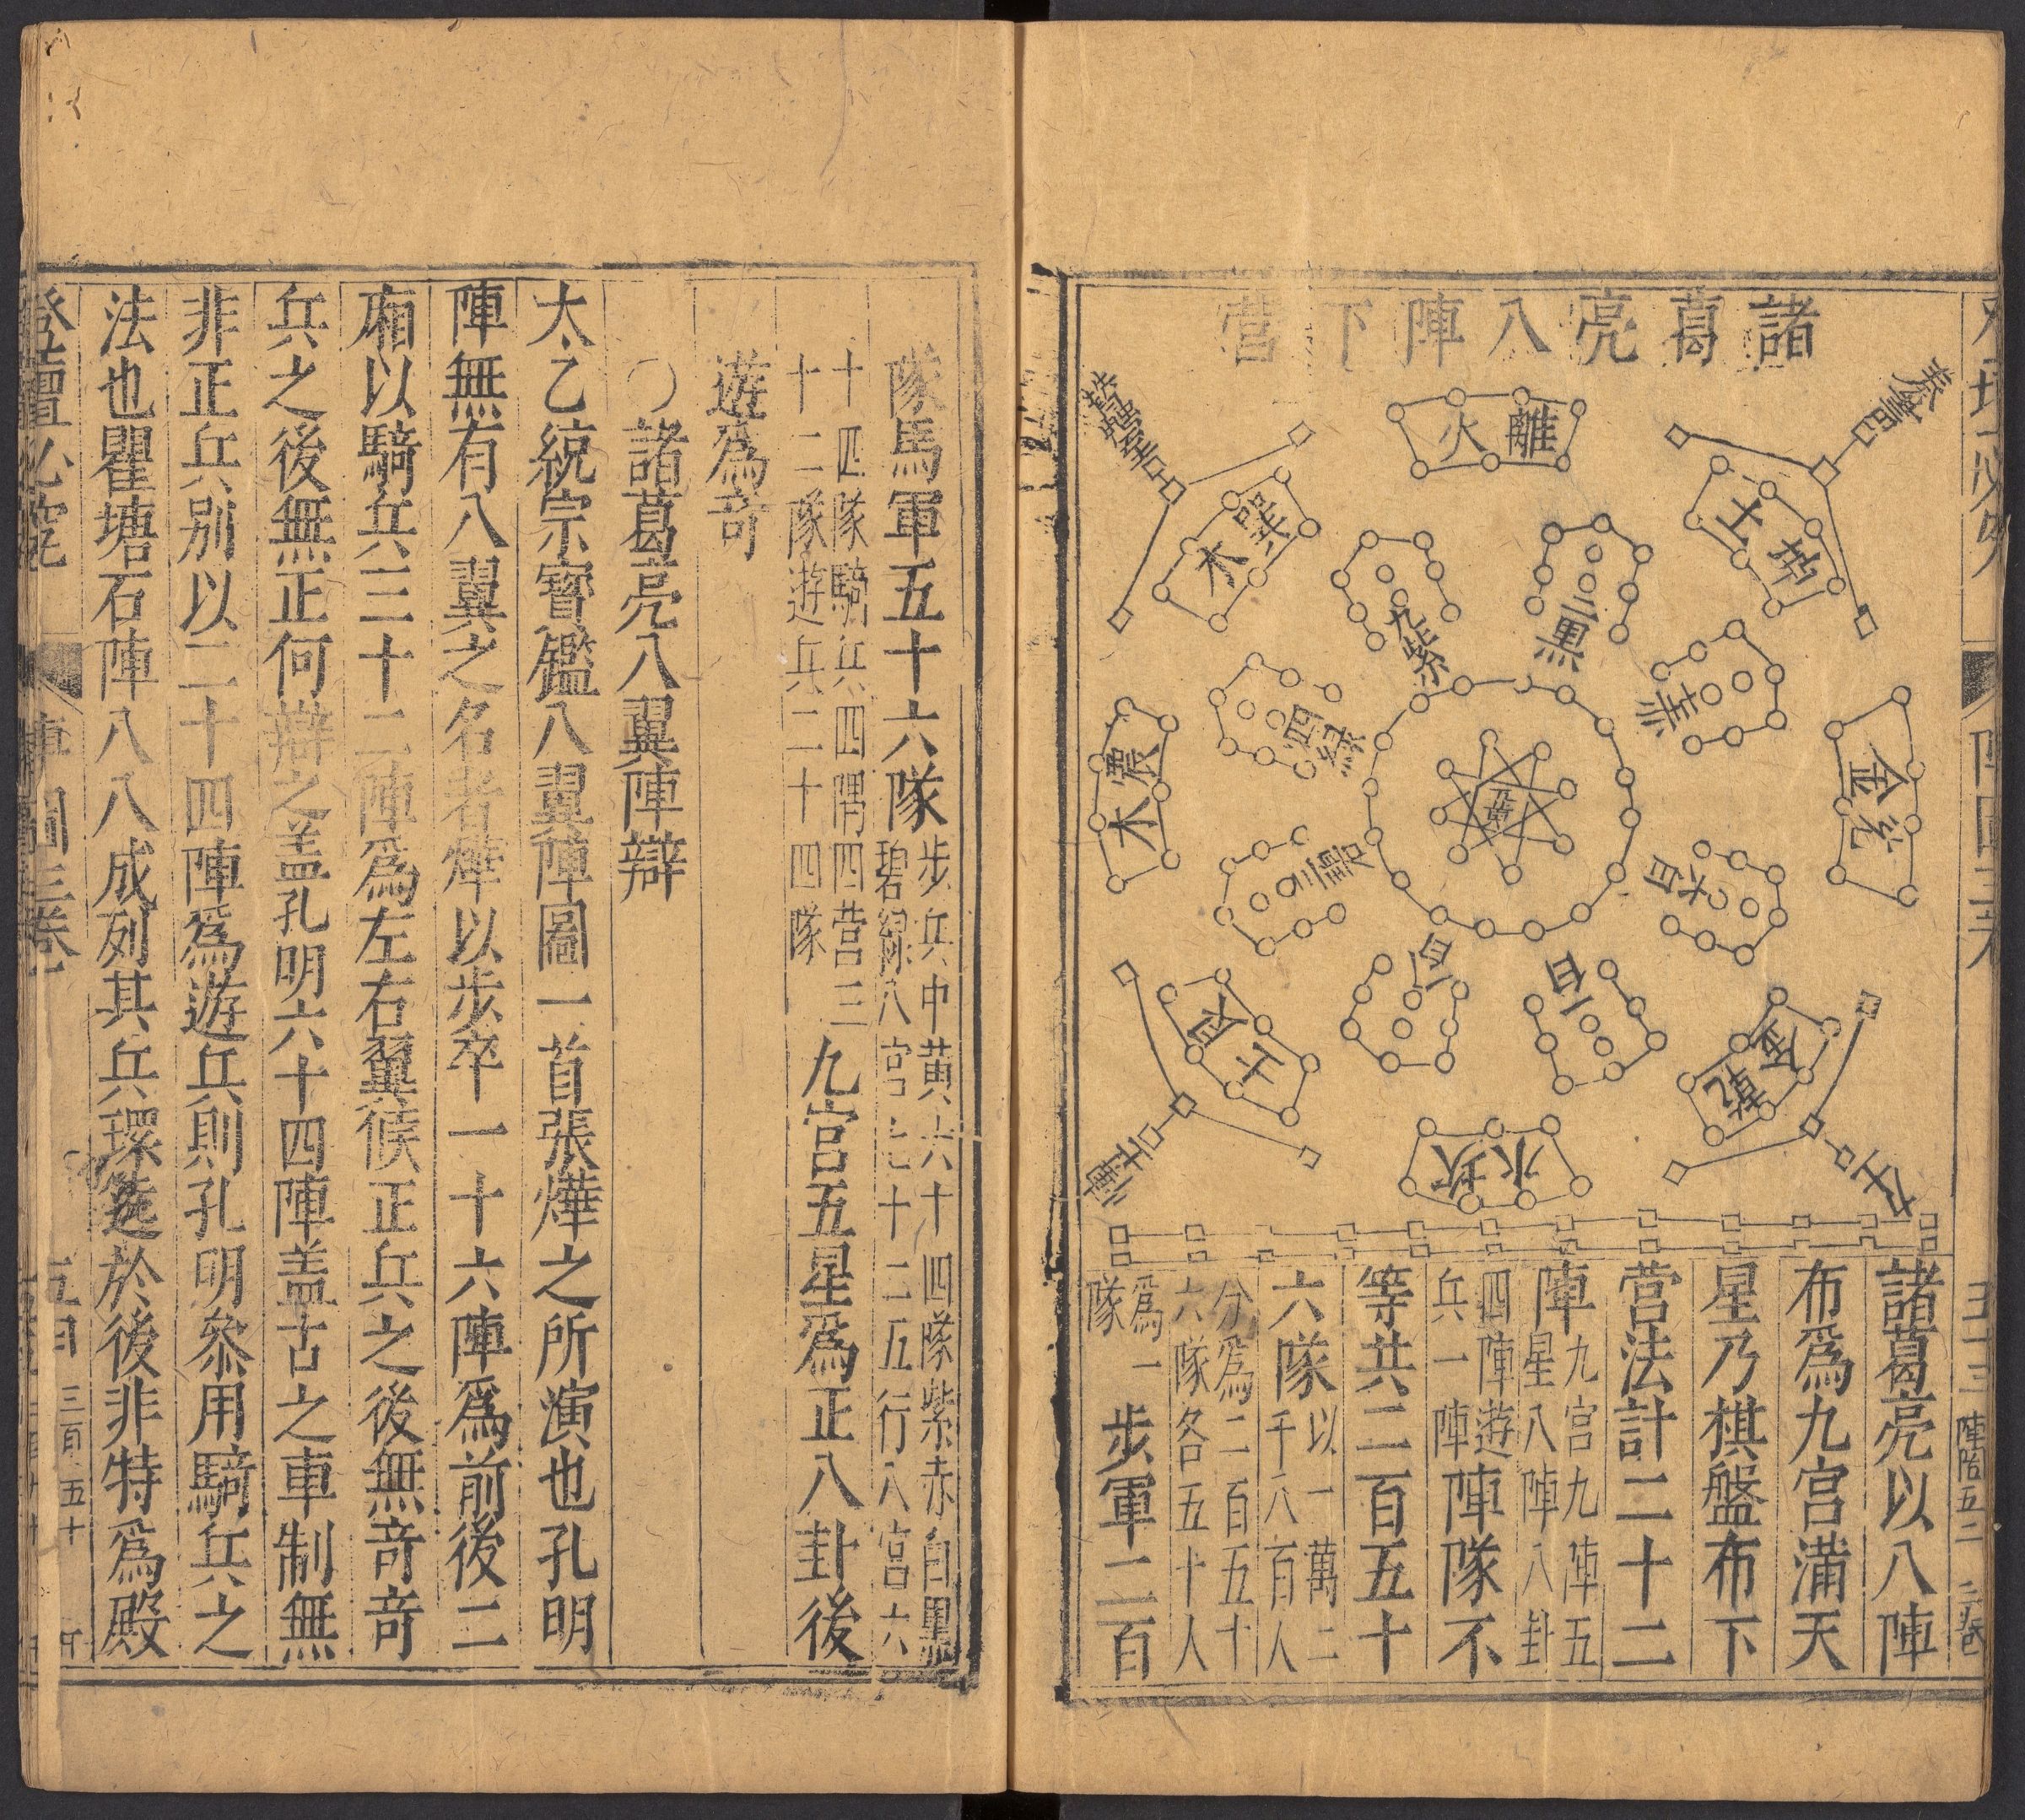 諸葛亮八陣下營
離火
坤土
兌金
乾金
坎水
艮土
震木
巽木
九紫
二黑
七赤
六白
一白
八白
三碧
四綠
五黃
諸葛亮以八陣
布爲九宮滿天
星乃棋盤布下
營法計二十二
陣九宮九陣五星八陣八卦
四陣遊兵一陣陣隊不
等共二百五十
六隊以一萬二千八百人
分爲二百五十六隊各五十人
爲一隊步軍二百
隊馬軍五十六隊步兵中黃六十四隊紫赤白黑碧綠八宮七十二五行八宮六
十四隊騎兵四隅四營三十二隊遊兵二十四隊九宮五星爲正八卦後
遊爲奇
○諸葛亮八翼陣辯
太乙統宗寶鑑八翼陣圖一首張燁之所演也孔明
陣無有八翼之名者燁以步卒一十六陣爲前後二
廂以騎兵三十二陣爲左右翼候正兵之後無奇奇
兵之後無正何辯之盖孔明六十四陣盖古之車制無
非正兵別以二十四陣爲遊兵則孔明叅用騎兵之
法也瞿塘石陣八八成列其兵環遶於後非特爲殿
登壇必究